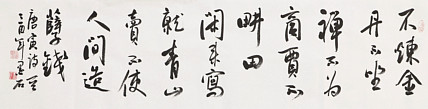 不煉金
丹不坐
禪不為
商賈不
畊田
閑来寫
就青山
賣不使
人間造
孽錢
唐寅詩
酉年